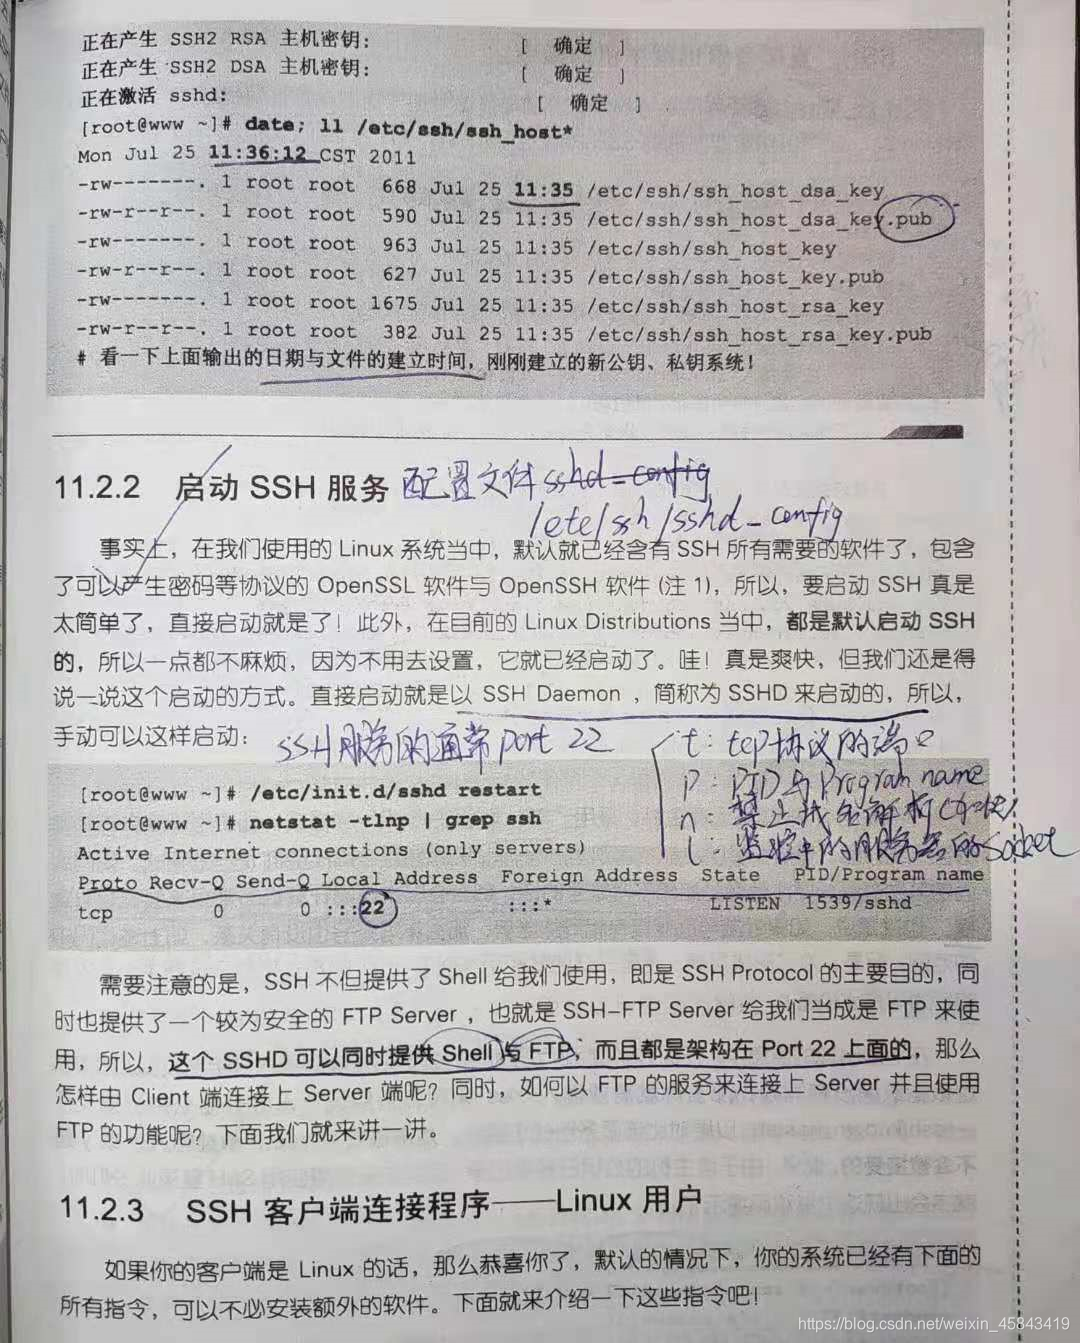 正在产生 SSH2 RSA 主机密钥: [ 确定 ]
正在产生 SSH2 DSA 主机密钥: [ 确定 ]
正在激活 sshd: [ 确定 ]
[root@www ~]# date; ll /etc/ssh/ssh_host*
Mon Jul 25 11:36:12 CST 2011
-rw-------. 1 root root 668 Jul 25 11:35 /etc/ssh/ssh_host_dsa_key
-rw-r--r--. 1 root root 590 Jul 25 11:35 /etc/ssh/ssh_host_dsa_key.pub
-rw-------. 1 root root 963 Jul 25 11:35 /etc/ssh/ssh_host_key
-rw-r--r--. 1 root root 627 Jul 25 11:35 /etc/ssh/ssh_host_key.pub
-rw-------. 1 root root 1675 Jul 25 11:35 /etc/ssh/ssh_host_rsa_key
-rw-r--r--. 1 root root 382 Jul 25 11:35 /etc/ssh/ssh_host_rsa_key.pub
# 看一下上面输出的日期与文件的建立时间，刚刚建立的新公钥、私钥系统！
11.2.2 启动 SSH 服务 配置文件 sshd_config
/etc/ssh/sshd_config
事实上，在我们使用的 Linux 系统当中，默认就已经含有 SSH 所有需要的软件了，包含
了可以产生密码等协议的 OpenSSL 软件与 OpenSSH 软件 (注 1)，所以，要启动 SSH 真是
太简单了，直接启动就是了！此外，在目前的 Linux Distributions 当中，都是默认启动 SSH
的，所以一点都不麻烦，因为不用去设置，它就已经启动了。哇！真是爽快，但我们还是得
说一说这个启动的方式。直接启动就是以 SSH Daemon ，简称为 SSHD 来启动的，所以，
手动可以这样启动：
SSH服务的通常port 22
t: tcp协议的端口
p: PID与Program name
n: 禁止域名解析
l: 监听中的服务器的Socket
[root@www ~]# /etc/init.d/sshd restart
[root@www ~]# netstat -tlnp | grep ssh
Active Internet connections (only servers)
Proto Recv-Q Send-Q Local Address Foreign Address State PID/Program name
tcp 0 0 :::22 :::* LISTEN 1539/sshd
需要注意的是，SSH 不但提供了 Shell 给我们使用，即是 SSH Protocol 的主要目的，同
时也提供了一个较为安全的 FTP Server ，也就是 SSH-FTP Server 给我们当成是 FTP 来使
用，所以，这个 SSHD 可以同时提供 Shell 与 FTP，而且都是架构在 Port 22 上面的，那么
怎样由 Client 端连接上 Server 端呢？同时，如何以 FTP 的服务来连接上 Server 并且使用
FTP 的功能呢？下面我们就来讲一讲。
11.2.3 SSH 客户端连接程序——Linux 用户
如果你的客户端是 Linux 的话，那么恭喜你了，默认的情况下，你的系统已经有下面的
所有指令，可以不必安装额外的软件。下面就来介绍一下这些指令吧！
https://blog.csdn.net/weixin_45843419